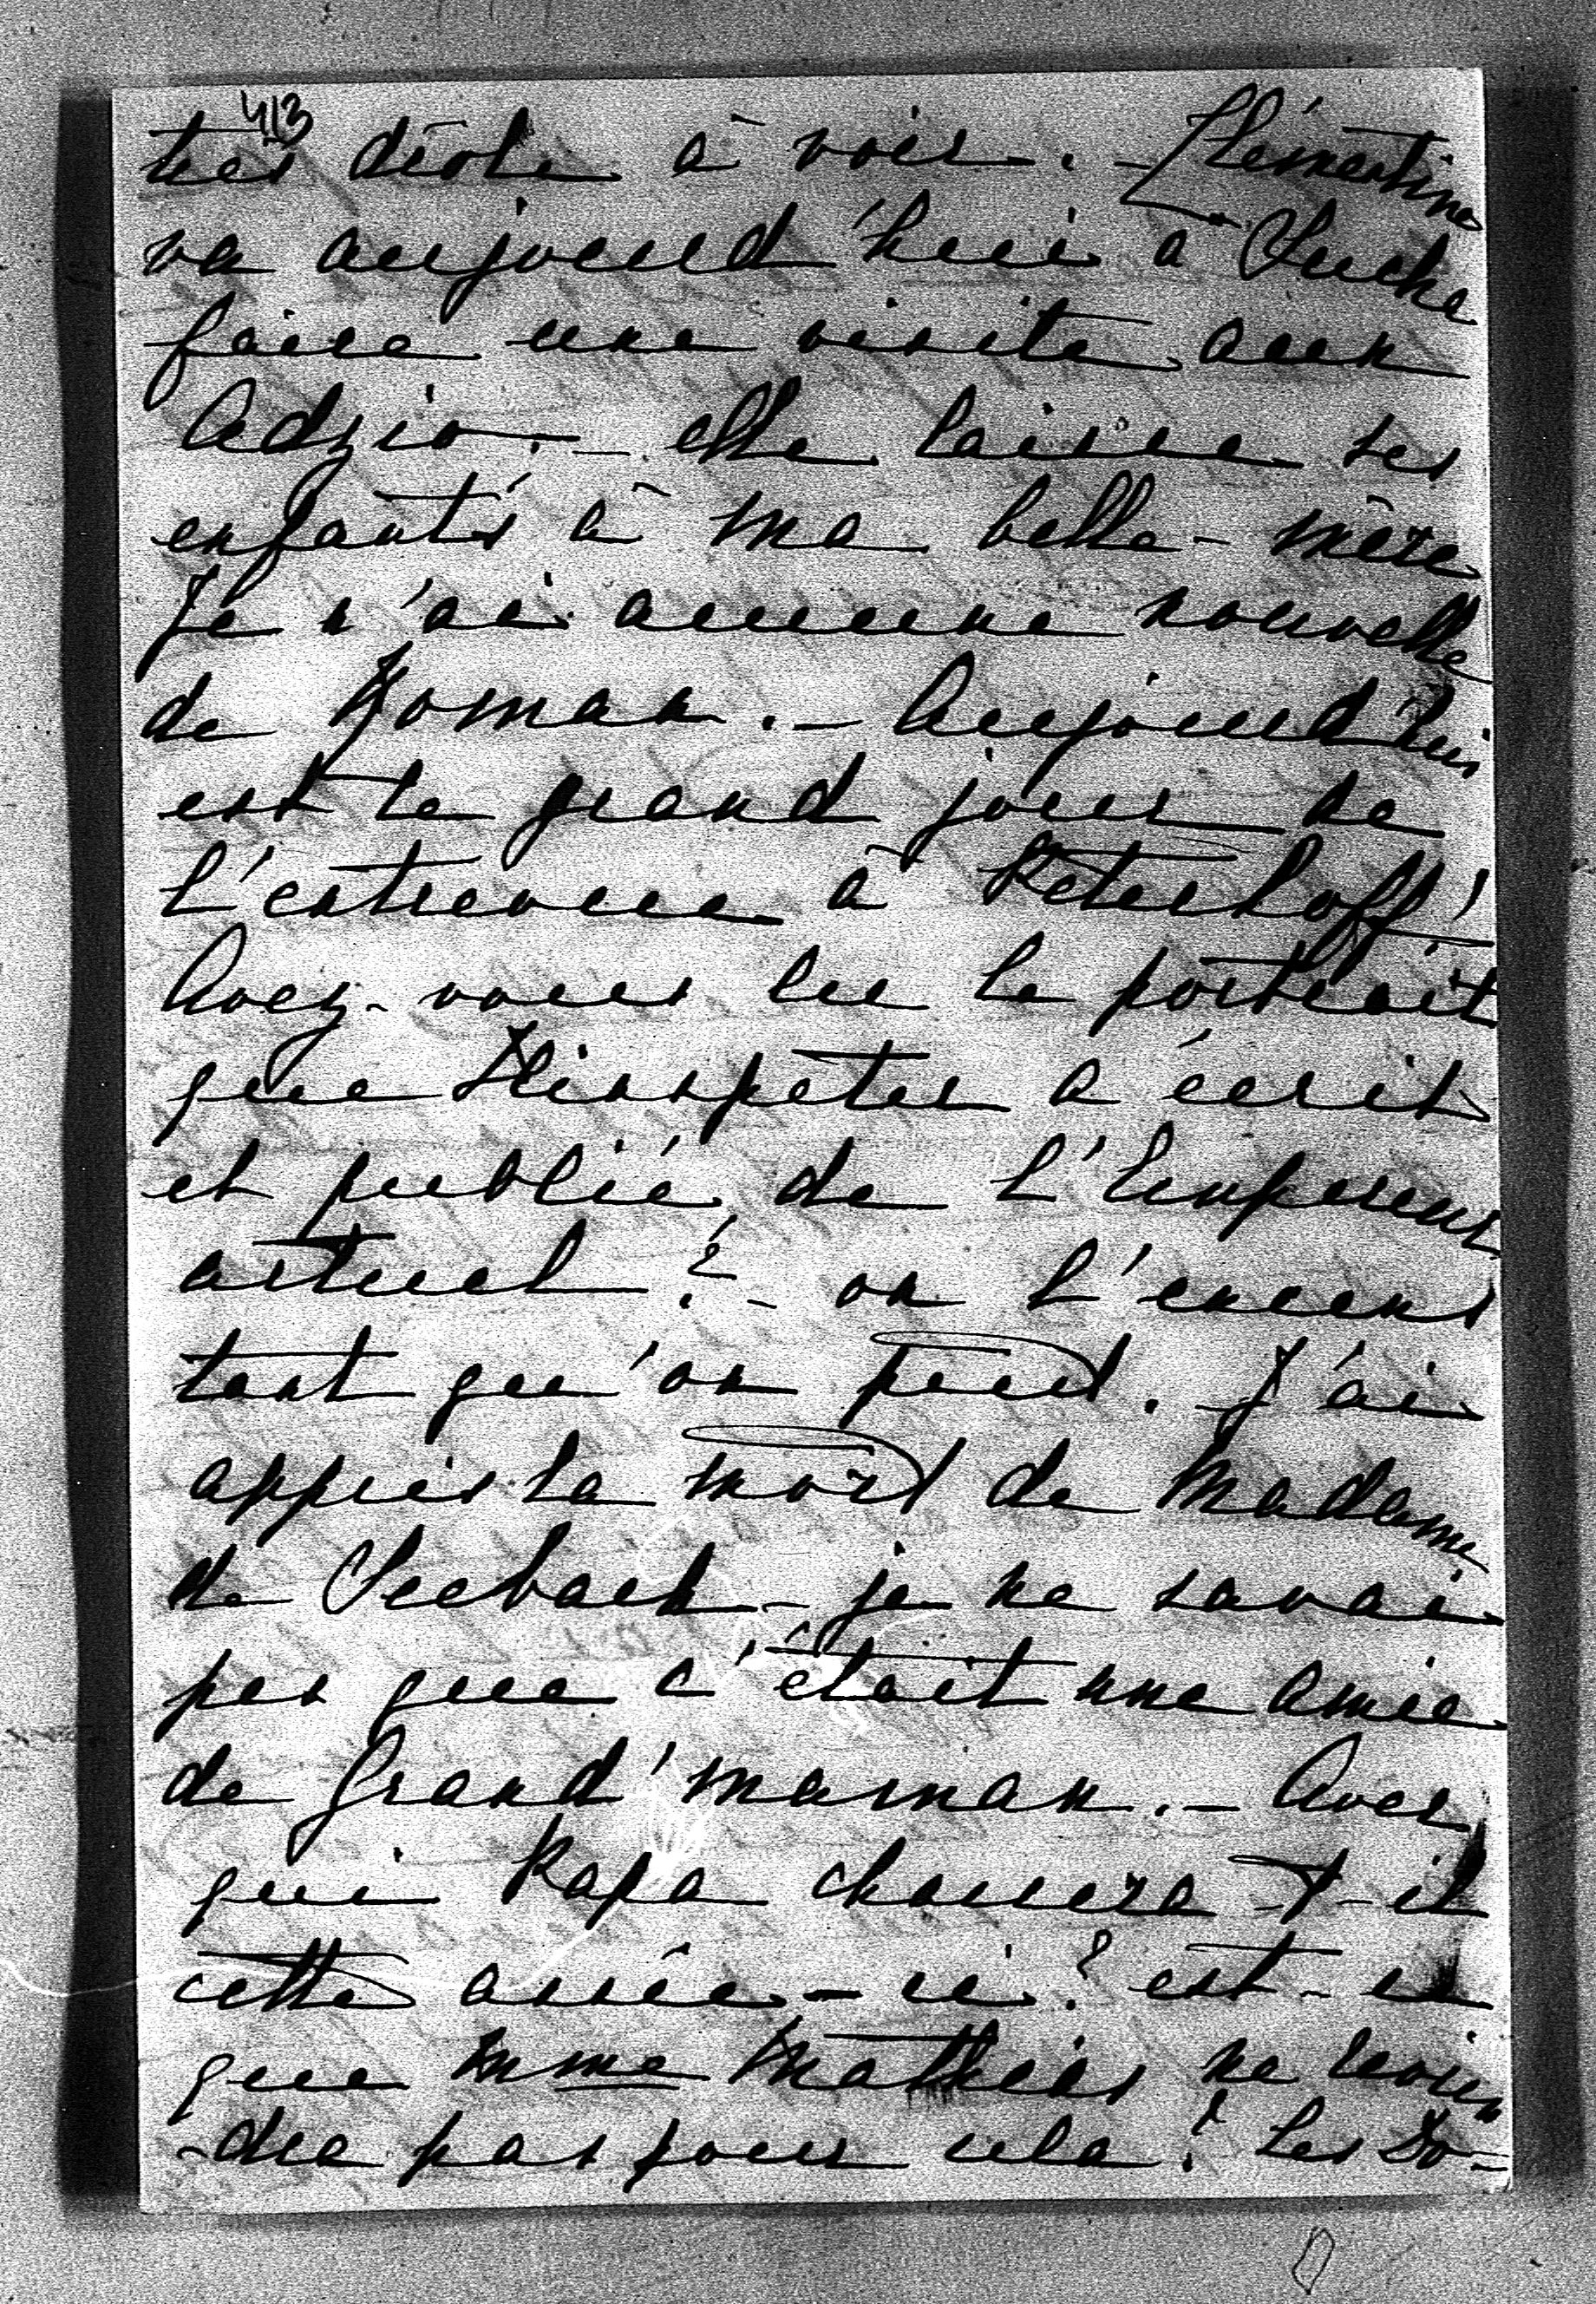 413
très drôle à voir. - Clémentine
va aujourd'hui à Sucha
faire une visite aux
Adzio. - elle laisse ses
enfants à ma belle-mère
Je n'ai aucune nouvelle
de Roman. - Aujourd'hui
est le grand jour de
l'entrevue à Peterhoff!
Avez-vous lu le portrait
que Hinspeter a écrit
et publié de l'Empereur
actuel? - on l'encens
tant qu'on peut. J'ai
appris la mort de Madame
de Seebach - je ne savais
pas que c'était une amie
de Grand'maman. - Avec
qui Papa chassera-t-il
cette année-ci? est-ce
que Mme Mathews ne revien
-dra pas pour cela? Les Do-